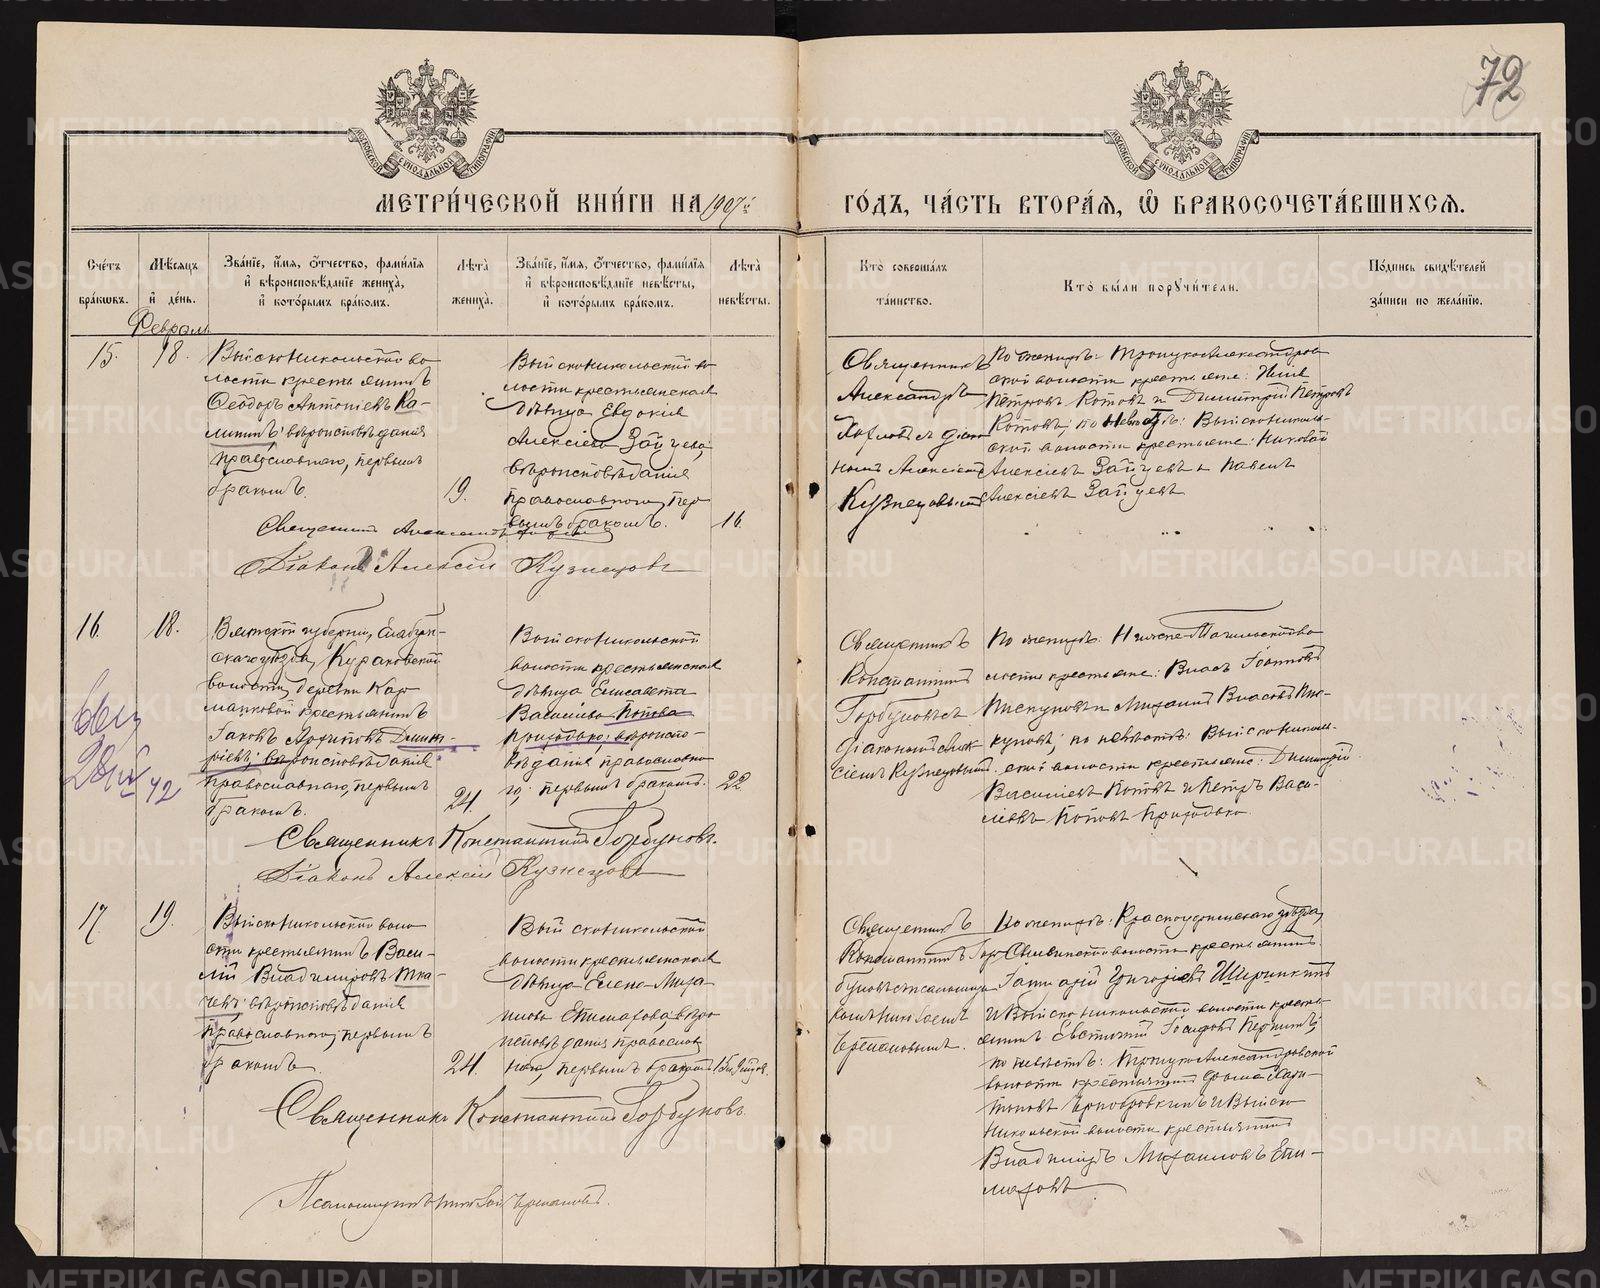 72
МЕТРИ́ЧЕСКОЙ КНИ́ГИ НА 1907 й
ГО́ДЪ, ЧА́СТЬ ВТОРА́Я, Ѡ БРАКОСОЧЕТА́ВШИХСЯ.
Сче́тъ бра́кѡвъ.
Мѣ́сяцъ и́ де́нь.
Зва́нїе, и́мя, ѻ́тчество, фами́лїя и́ вѣроисповѣ́данїе жениха̀, и́ кото́рымъ бра́комъ.
Лѣта̀ жениха̀.
Зва́нїе, и́мя, ѻ́тчество, фами́лїя и́ вѣроисповѣ́данїе невѣ́сты, и́ кото́рымъ бра́комъ.
Лѣта̀ невѣ́сты.
Кто̀ соверша́лъ та́инство.
Кто̀ бы́ли порꙋчи́тели.
По́дпись свидѣ́телей за́писи по жела́нїю.
Февраль
15.
18.
Выйсконикольской во-
лости крестьянинъ
Ѳеодоръ Антонiевъ Ка-
лининъ, вѣроисповѣданiя
православнаго, первымъ
бракомъ.
19.
Выйсконикольской во-
лости крестьянская
дѣвица Евдокiя
Алексiева Зайцева,
вѣроисповѣданiя
православнаго, пер-
вымъ бракомъ.
16.
Священникъ
Александръ
дiако-
номъ Алексiемъ
Кузнецовымъ
По женихѣ: Троицкоалександров-
ской волости крестьяне: Илiя
Петровъ Котовъ и Димитрiй Петровъ
Котовъ; по невѣстѣ: Выйсконикол-
ской волости крестьяне: Николай
Алексiевъ Зайцевъ и Павелъ
Алексiевъ Зайцевъ
Священникъ Александръ
Дiаконъ Алексiй Кузнецовъ
16.
18.
Вятской губернiи, Елабуж-
скаго уѣзда, Кураковской
волости, деревни
крестьянинъ
Iаковъ Архиповъ Димит-
рiевъ, вѣроисповѣданiя
православнаго, первымъ
бракомъ.
24.
Выйсконикольской
волости крестьянская
дѣвица Елисавета
Василiева Попова
Приходько, вѣроиспо-
вѣданiя православна-
го, первымъ бракомъ.
22.
Священникъ
Константинъ
Горбуновъ съ
дiакономъ Алек-
сiемъ Кузнецовымъ.
По женихѣ: Нижне-Тагильской во-
лости крестьяне: Власъ Iоанновъ
Пискуновъ и Михаилъ Власовъ Пис-
куновъ; по невѣстѣ: Выйсконикол-
ской волости крестьяне: Димитрiй
Василiевъ Поповъ и Петръ Васи-
лiевъ Поповъ Приходько.
Священникъ Константинъ Горбуновъ.
Дiаконъ Алексiй Кузнецовъ
17.
19.
Выйсконикольской воло-
сти крестьянинъ Васи-
лiй Владимировъ Тка-
чевъ, вѣроисповѣданiя
православнаго, первымъ
бракомъ.
24.
Выйсконикольской
волости крестьянская
дѣвица Елена Миха-
илова Епимахова, вѣро-
исповѣданiя православ-
наго, первымъ бракомъ
Священникъ
Константинъ Гор-
буновъ съ псаломщи-
комъ Николаемъ
По женихѣ: Красноуфимскаго уѣзда,
волости крестьянинъ
Григорiевъ
и Выйсконикольской волости кресть-
янинъ
по невѣстѣ: Троицкоалександровской
волости крестьянинъ Ѳома Хари-
тоновъ и Выйско-
никольской волости крестьянинъ
Владимiръ Михаиловъ Епи-
маховъ
Священникъ Константинъ Горбуновъ
Псаломщикъ Николай
METRIKI.GASO-URAL.RU